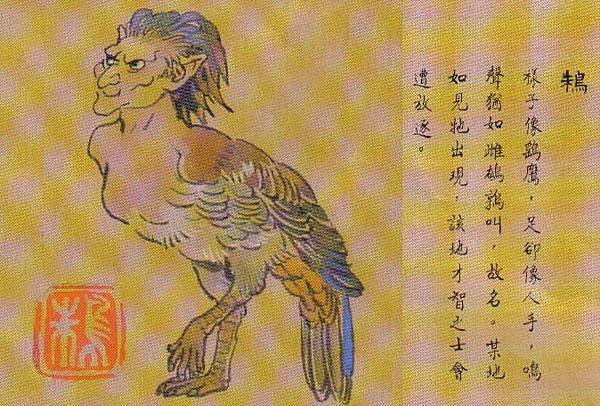 鴸
樣子像鷂鷹，足卻像人手，鳴
聲猶如雌鵪鶉叫，故名。某地
如見牠出現，該地才智之士會
遭放逐。
鴸